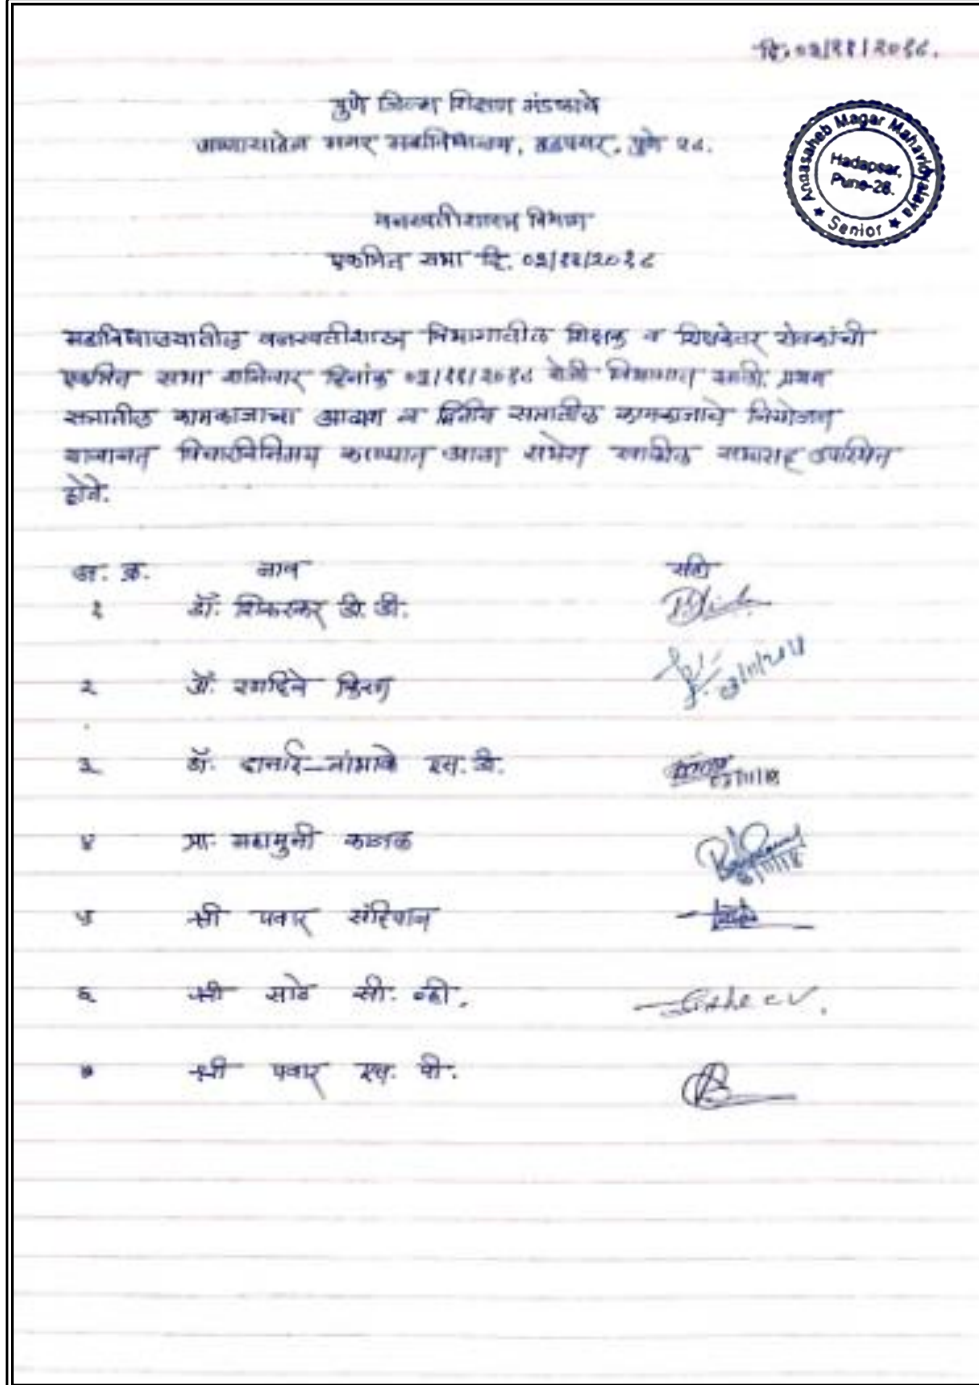 दि. ०३/११/२०१८.
पुणे जिल्हा शिक्षण मंडळाचे
अण्णासाहेब मगर महाविद्यालय, हडपसर, पुणे २८.
Annasaheb Magar Mahavidyalaya
Hadapsar,
Pune-28.
Senior
वनस्पतीशास्त्र विभाग
एकत्रित सभा दि. ०३/११/२०१८
महाविद्यालयातील वनस्पतीशास्त्र विभागातील शिक्षक व शिक्षकेतर सेवकांची
एकत्रित सभा शनिवार दिनांक ०३/११/२०१८ रोजी विभागात झाली. प्रथम
सत्रातील कामकाजाचा आढावा व द्वितीय सत्रातील कामकाजाचे नियोजन
याबाबत विचारविनिमय करण्यात आला सभेस खालील सभासद उपस्थित
होते.
अ. क्र. नाव सही
१ डॉ. डी. डी.
२ डॉ. रणदिवे किरण 03/11/2018
३ डॉ. एस. बी. 03/11/18
४ प्रा. महामुनी काजल
५ श्री पवार संदिपान
६ श्री साठे सी. व्ही. Sathe C.V.
७ श्री पवार एस. पी.